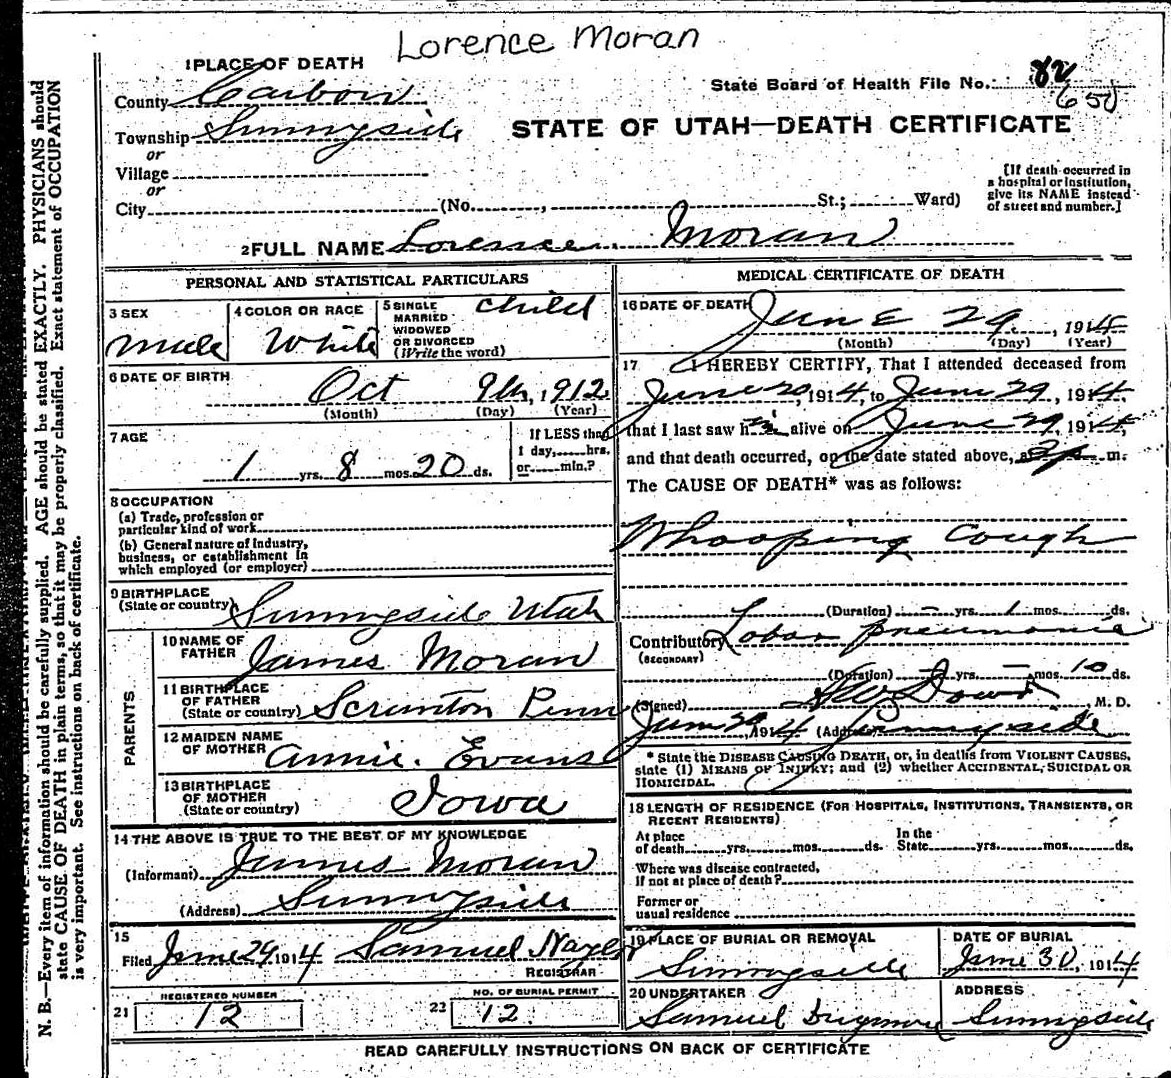 Lorence Moran
1 PLACE OF DEATH
County Carbon
State Board of Health File No. 82
650
Township Sunnyside
STATE OF UTAH—DEATH CERTIFICATE
or
Village
or
City (No. , St.; Ward)
[If death occurred in
a hospital or institution,
give its NAME instead
of street and number.]
2 FULL NAME Lorence Moran
PERSONAL AND STATISTICAL PARTICULARS
3 SEX male
4 COLOR OR RACE White
5 SINGLE
MARRIED
WIDOWED
OR DIVORCED
(Write the word) child
6 DATE OF BIRTH Oct 9th, 1912
(Month) (Day) (Year)
7 AGE
1 yrs. 8 mos. 20 ds.
If LESS than
1 day, hrs.
or min.?
8 OCCUPATION
(a) Trade, profession or
particular kind of work
(b) General nature of industry,
business, or establishment in
which employed (or employer)
9 BIRTHPLACE
(State or country) Sunnyside Utah
PARENTS
10 NAME OF
FATHER James Moran
11 BIRTHPLACE
OF FATHER
(State or country) Scranton Penn
12 MAIDEN NAME
OF MOTHER Annie. Evans
13 BIRTHPLACE
OF MOTHER
(State or country) Iowa
14 THE ABOVE IS TRUE TO THE BEST OF MY KNOWLEDGE
(Informant) James Moran
(Address) Sunnyside
15
Filed June 29, 1914 Samuel Naylor
REGISTRAR
REGISTERED NUMBER
21 12
NO. OF BURIAL PERMIT
22 12
MEDICAL CERTIFICATE OF DEATH
16 DATE OF DEATH June 29, 1914
(Month) (Day) (Year)
17 I HEREBY CERTIFY, That I attended deceased from
June 20, 1914, to June 29, 1914,
that I last saw him alive on June 29, 1914,
and that death occurred, on the date stated above, at 3 p m.
The CAUSE OF DEATH* was as follows:
Whooping Cough
(Duration) – yrs. 1 mos. ds.
Contributory Lobar pneumonia
(SECONDARY)
(Duration) – yrs. – mos. 10 ds.
(Signed) Dowd M. D.
June 29, 1914 (Address) Sunnyside
* State the DISEASE CAUSING DEATH, or, in deaths from VIOLENT CAUSES,
state (1) MEANS OF INJURY; and (2) whether ACCIDENTAL, SUICIDAL OR
HOMICIDAL.
18 LENGTH OF RESIDENCE (FOR HOSPITALS, INSTITUTIONS, TRANSIENTS, OR
RECENT RESIDENTS)
At place
of death yrs. mos. ds.
In the
State yrs. mos. ds.
Where was disease contracted,
if not at place of death?
Former or
usual residence
19 PLACE OF BURIAL OR REMOVAL
Sunnyside
DATE OF BURIAL
June 30, 1914
20 UNDERTAKER
Samuel
ADDRESS
Sunnyside
READ CAREFULLY INSTRUCTIONS ON BACK OF CERTIFICATE
N. B.—Every item of information should be carefully supplied. AGE should be stated EXACTLY. PHYSICIANS should
state CAUSE OF DEATH in plain terms, so that it may be properly classified. Exact statement of OCCUPATION
is very important. See instructions on back of certificate.